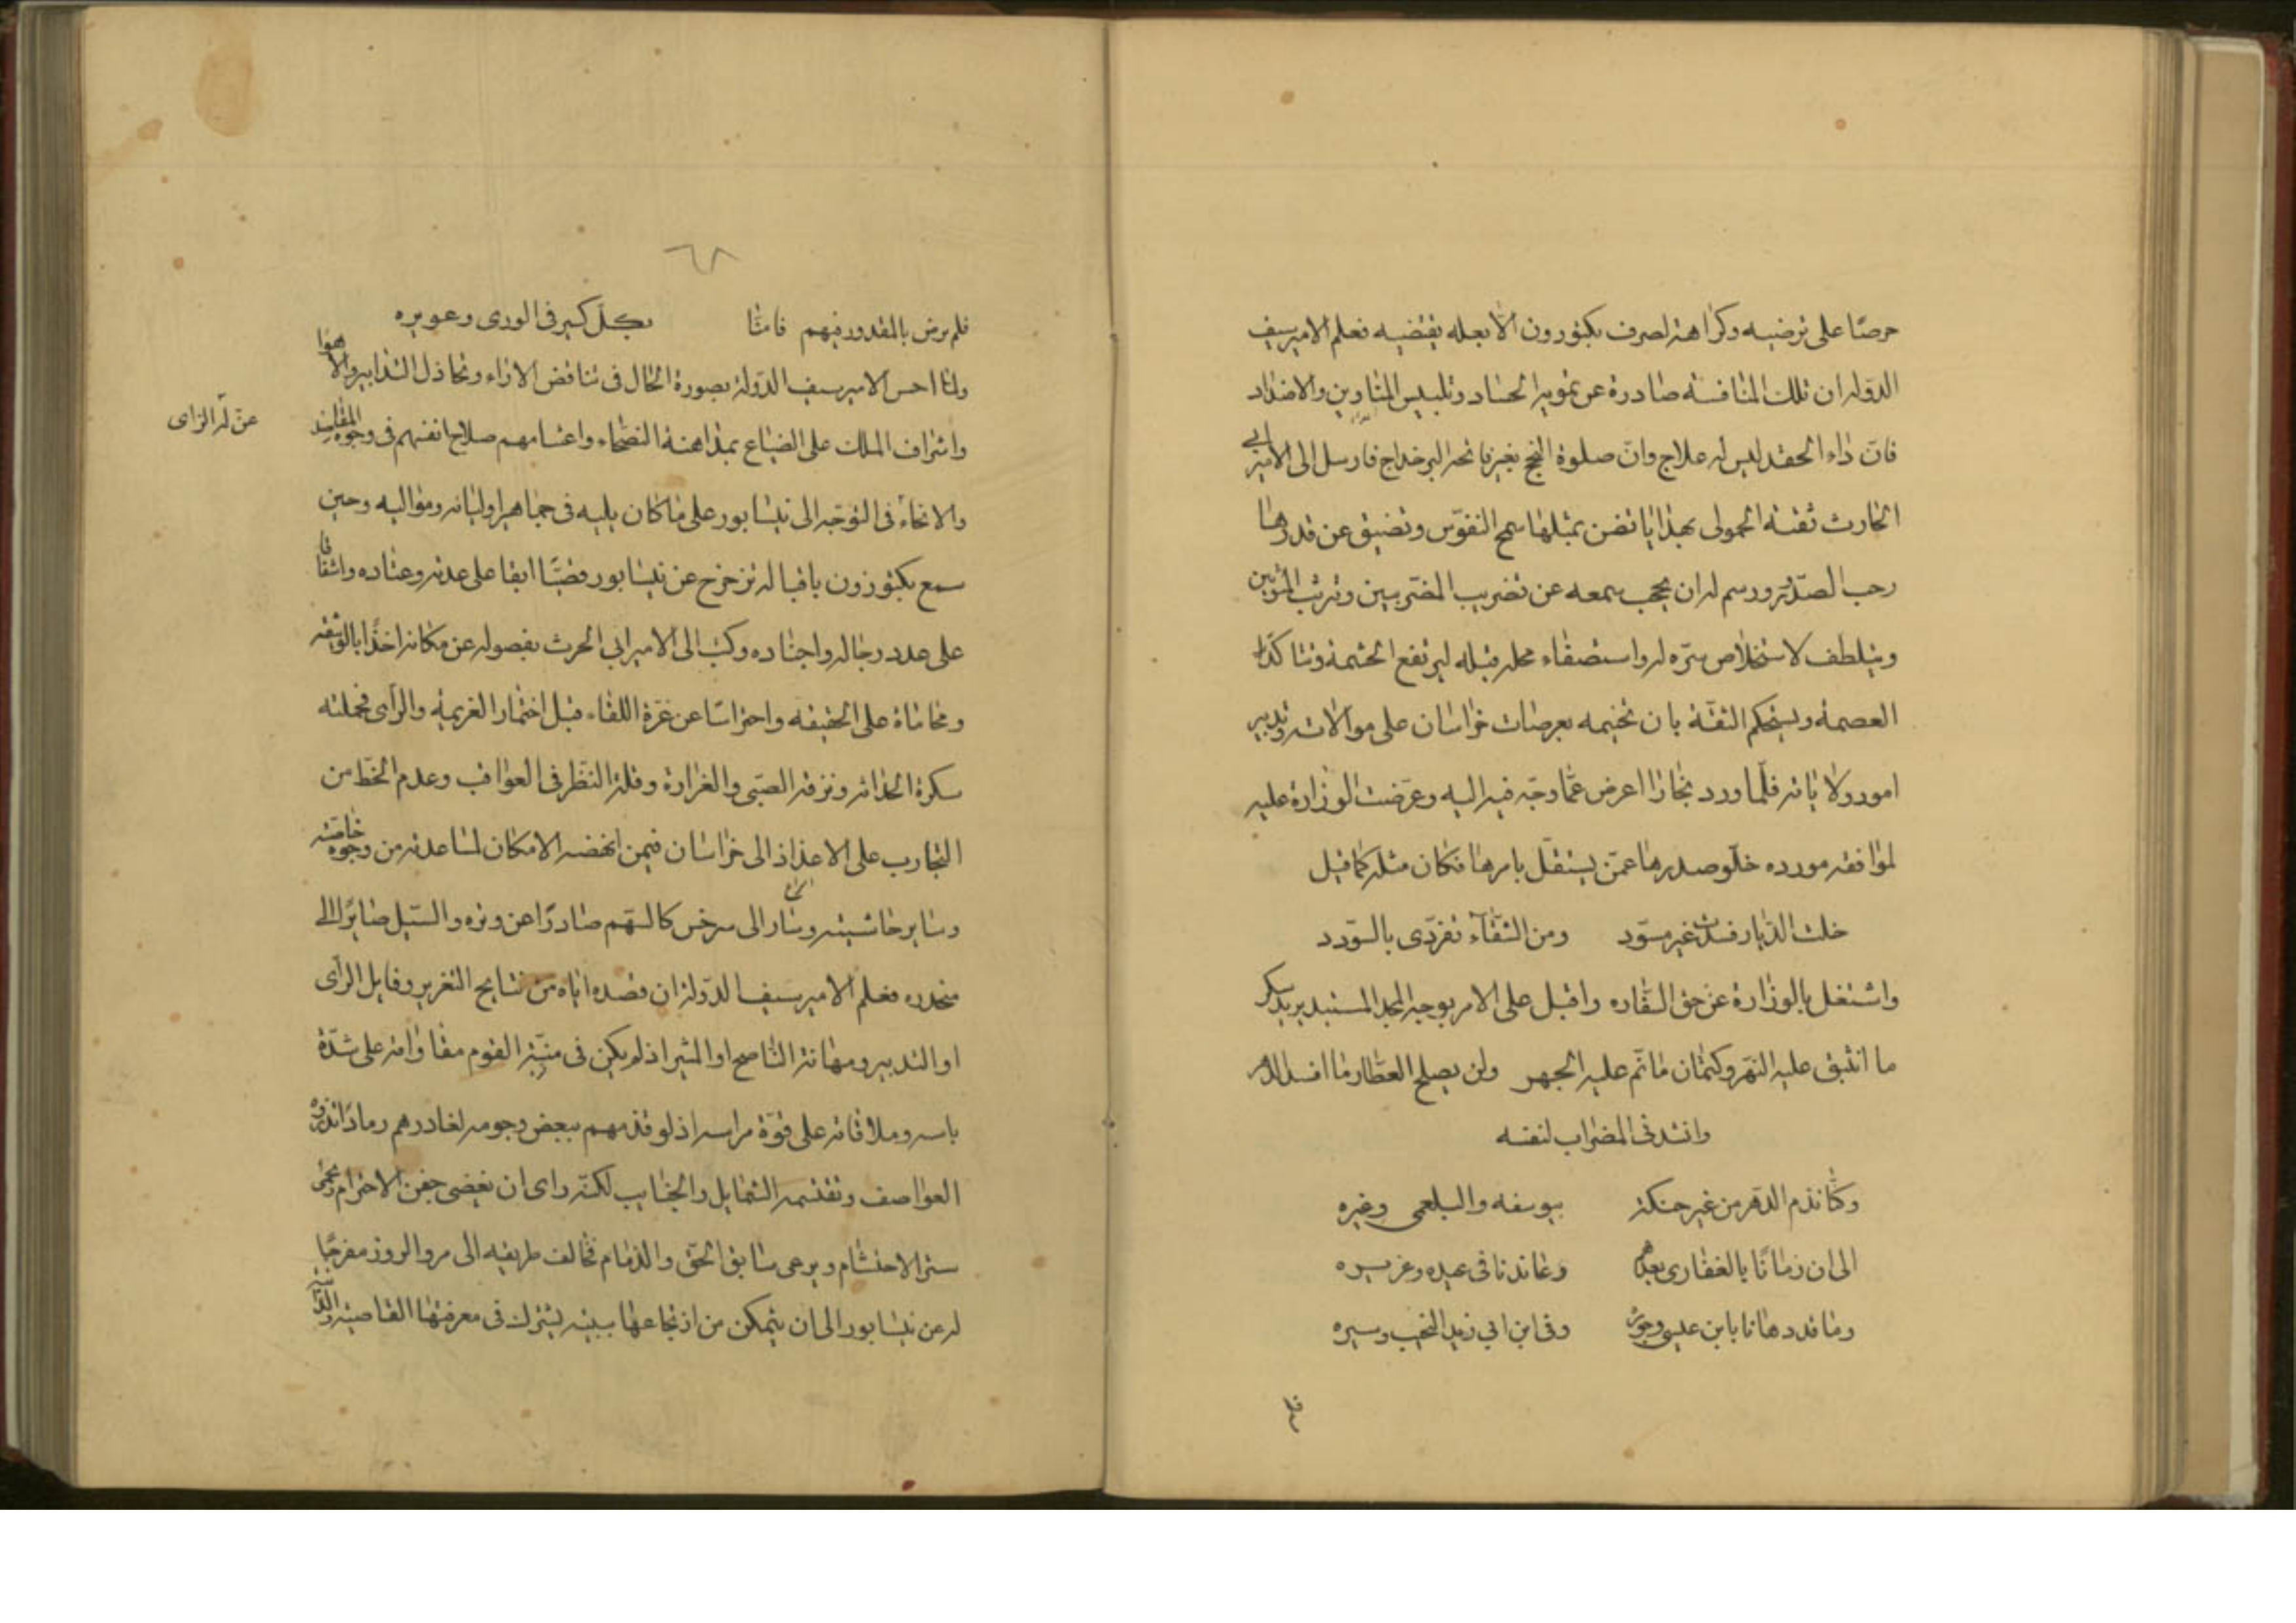 حرصًا على ترضيه وكراهة لصرف بكتوزون الا بعله يقتضيه فعلم الامير سيف
الدوله ان تلك المنافسه صادرة عن تمويه الحساد وتلبيس المناوين والاضداد
فان داء الحقد ليس له علاج وان صلوة النجح بغير فاتحه البر خداج فارسل الى الامير ابى
الحارث ثقته الحمولى بهدايا تضن بمثلها سمح النفوس وتضيق عن قدرها
رحب الصدور ورسم له ان يحجب سمعه عن تضريب المضربين
ويتلطف لاستخلاص سره له واستصفاء محله قبله ليرتفع الحشمة وتتاكد
العصمة ويستحكم الثقة بان تخيمه بعرصات خراسان على موالاته وتدبير
امور ولاياته فلما ورد بخارا اعرض عما وجه فيه اليه وعرضت الوزارة عليه
لموافقه مورده خلو صدرها عمن يستقل بامرها فكان مثله كما قيل
خلت الديار فسدت غير مسود ومن الشقاء تفردى بالسودد
واشتغل بالوزارة عن حق السفاره واقبل على الامر بوجه المجد المستبد يريد سكر
ما انبثق عليه النهر وكتمان ما نم عليه الجهر ولن يصلح العطار ما افسد الدهر
وانشد فى المضراب لنفسه
وكنا نذم الدهر من غير حنكة بيوسفه والبلعمى وغيره
الى ان زمانا بالغفارى بعدهم وعاندنا فى عبده وعزيره
وما قد دهانا بابن عيسى وجوره وفى ابن ابى زيد النخب وسيره
فلم
٦٨
فلم يرض بالمقدور فيهم فامنا بكل كسير فى الورى وعويره
ولما احس الامير سيف الدولة بصورة الحال فى تناقض الاراء وتخاذل التدابير والاهوا
واشراف الملك على الضياع بمداهنة النصحاء واغتنامهم صلاح انفسهم فى وجوه المفاسد
عن له الراى
والانحاء فى التوجه الى نيسابور على ما كان يليه فى جماهير اوليائه ومواليه وحين
سمع بكتوزون باقباله تزحزح عن نيسابور ابقا على عدته وعتاده واشفاقا
على عدد رجاله واجناده وكتب الى الامير ابى الحرث بفصوله عن مكانه اخذا بالوثيقه
ومحاماة على الحقيقه واحتراسا عن غرة اللقاء قبل اختمار العزيمة والراى فحملته
سكرة الحداثه ونزقة الصبى والغرارة وقلة النظر فى العواقب وعدم الحظ من
التجارب على الاغذاذ الى خراسان فيمن انهضه الامكان لمساعدته من وجوه خاصته
وساير حاشيته وسار الى سرخس كالسهم صادرًا عن وتره والسيل صايرًا الى
منحدره فعلم الامير سيف الدولة ان قصده اياه من نتايج التغرير وفايل الراى
او التدبير ومهانة الناصح او المشير اذ لم يكن فى منة القوم مقاواته على شدة
باسه وملاقاته على قوة مراسه اذ لو قذمهم ببعض رجومه لغادرهم رمادا تذروه
العواصف وتقتسمه الشمايل والجنايب لكنه راى ان يغضى جفن الاحترام
ستر الاحتشام ويرعى سابق الحق والذمام فخالف طريقه الى مرو الروذ مفرجًا
له عن نيسابور الى ان يتمكن من ارتجاعها ببينه يشترك فى معرفتها القاصيه والدانيه